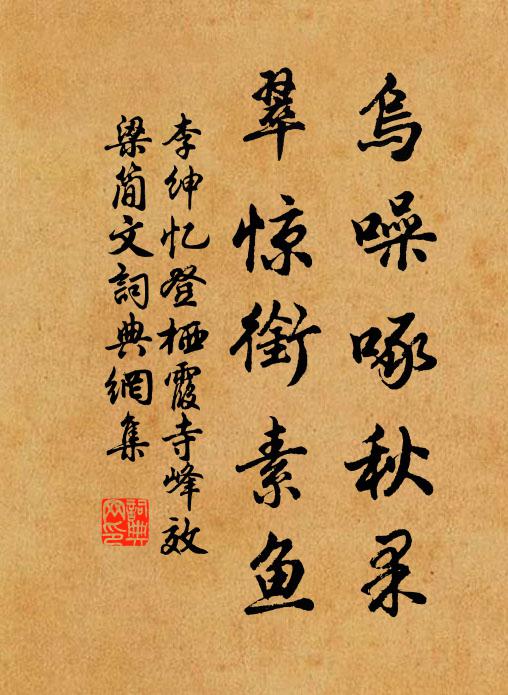 乌噪啄秋果
翠惊衔素鱼
李绅忆登栖霞寺峰效
梁简文词典网集
词典网印